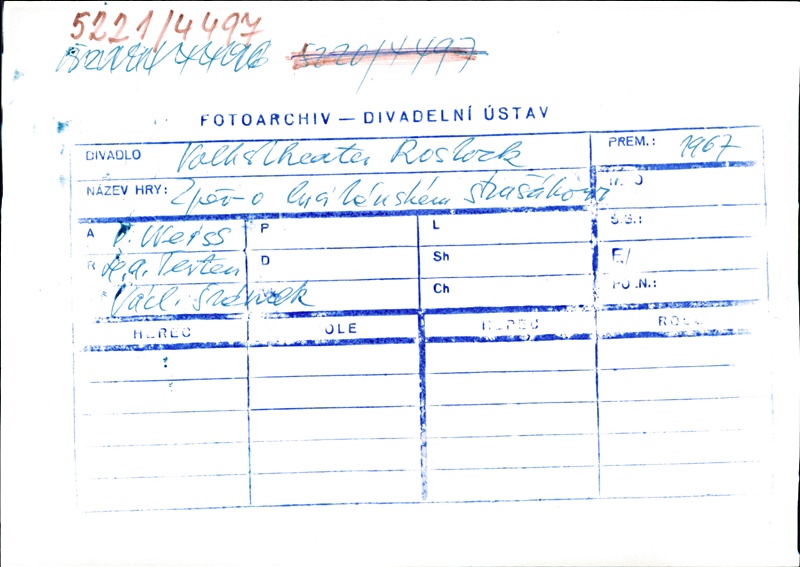 5221/4497
5220/4497
FOTOARCHIV — DIVADELNÍ ÚSTAV
DIVADLO Volkstheater Rostock PREM.: 1967
NÁZEV HRY: Zpěv o luzitánském strašákovi
A P. Weiss P L Š.S.:
R H. A. Perten D Sh F./
Václ. Ch PO.N.:
HEREC ROLE HEREC ROLE